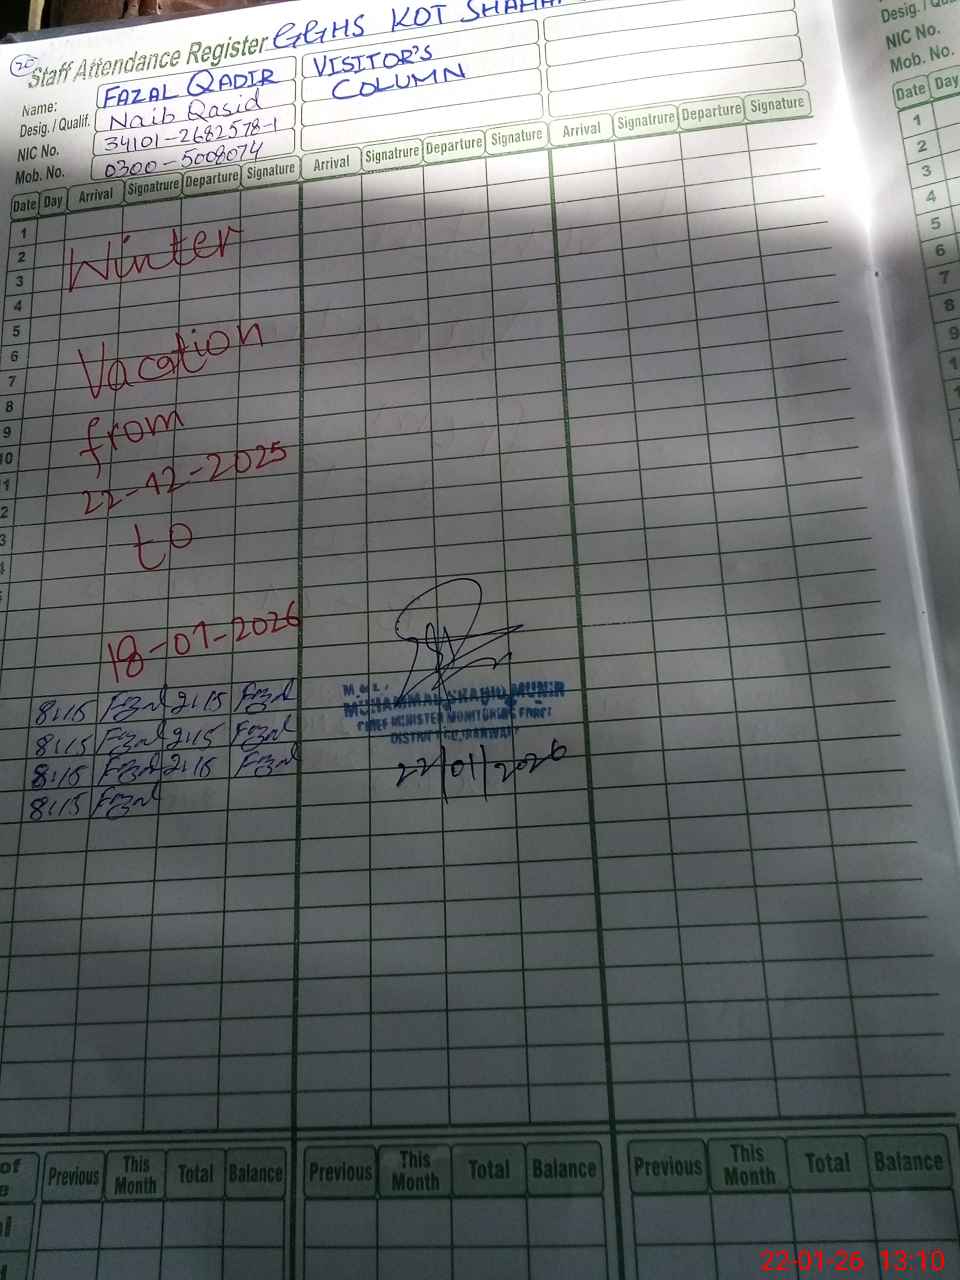 20
Staff Attendance Register GGHS KOT
Name: FAZAL QADIR
Desig. / Qualif. Naib Qasid
NIC No. 34101-2682578-1
Mob. No. 0300-5008074
VISITOR'S
COLUMN
Date Day Arrival Signatrure Departure Signature Arrival Signatrure Departure Signature Arrival Signatrure Departure Signature
1
2
3
4
5
6
7
8
9
10
Winter
Vacation
from
22-12-2025
to
18-01-2026
8:15 Fazal 2:15 Fazal
8:15 Fazal 2:15 Fazal
8:15 Fazal 2:15 Fazal
8:15 Fazal
MUHAMMAD SHAHID MUNIR
CHIEF MINISTER MONITORING FORCE
22/01/2026
Previous This Month Total Balance Previous This Month Total Balance Previous This Month Total Balance
NIC No.
Mob. No.
Date Day
1
2
3
4
5
6
7
8
9
22-01-26 13:10